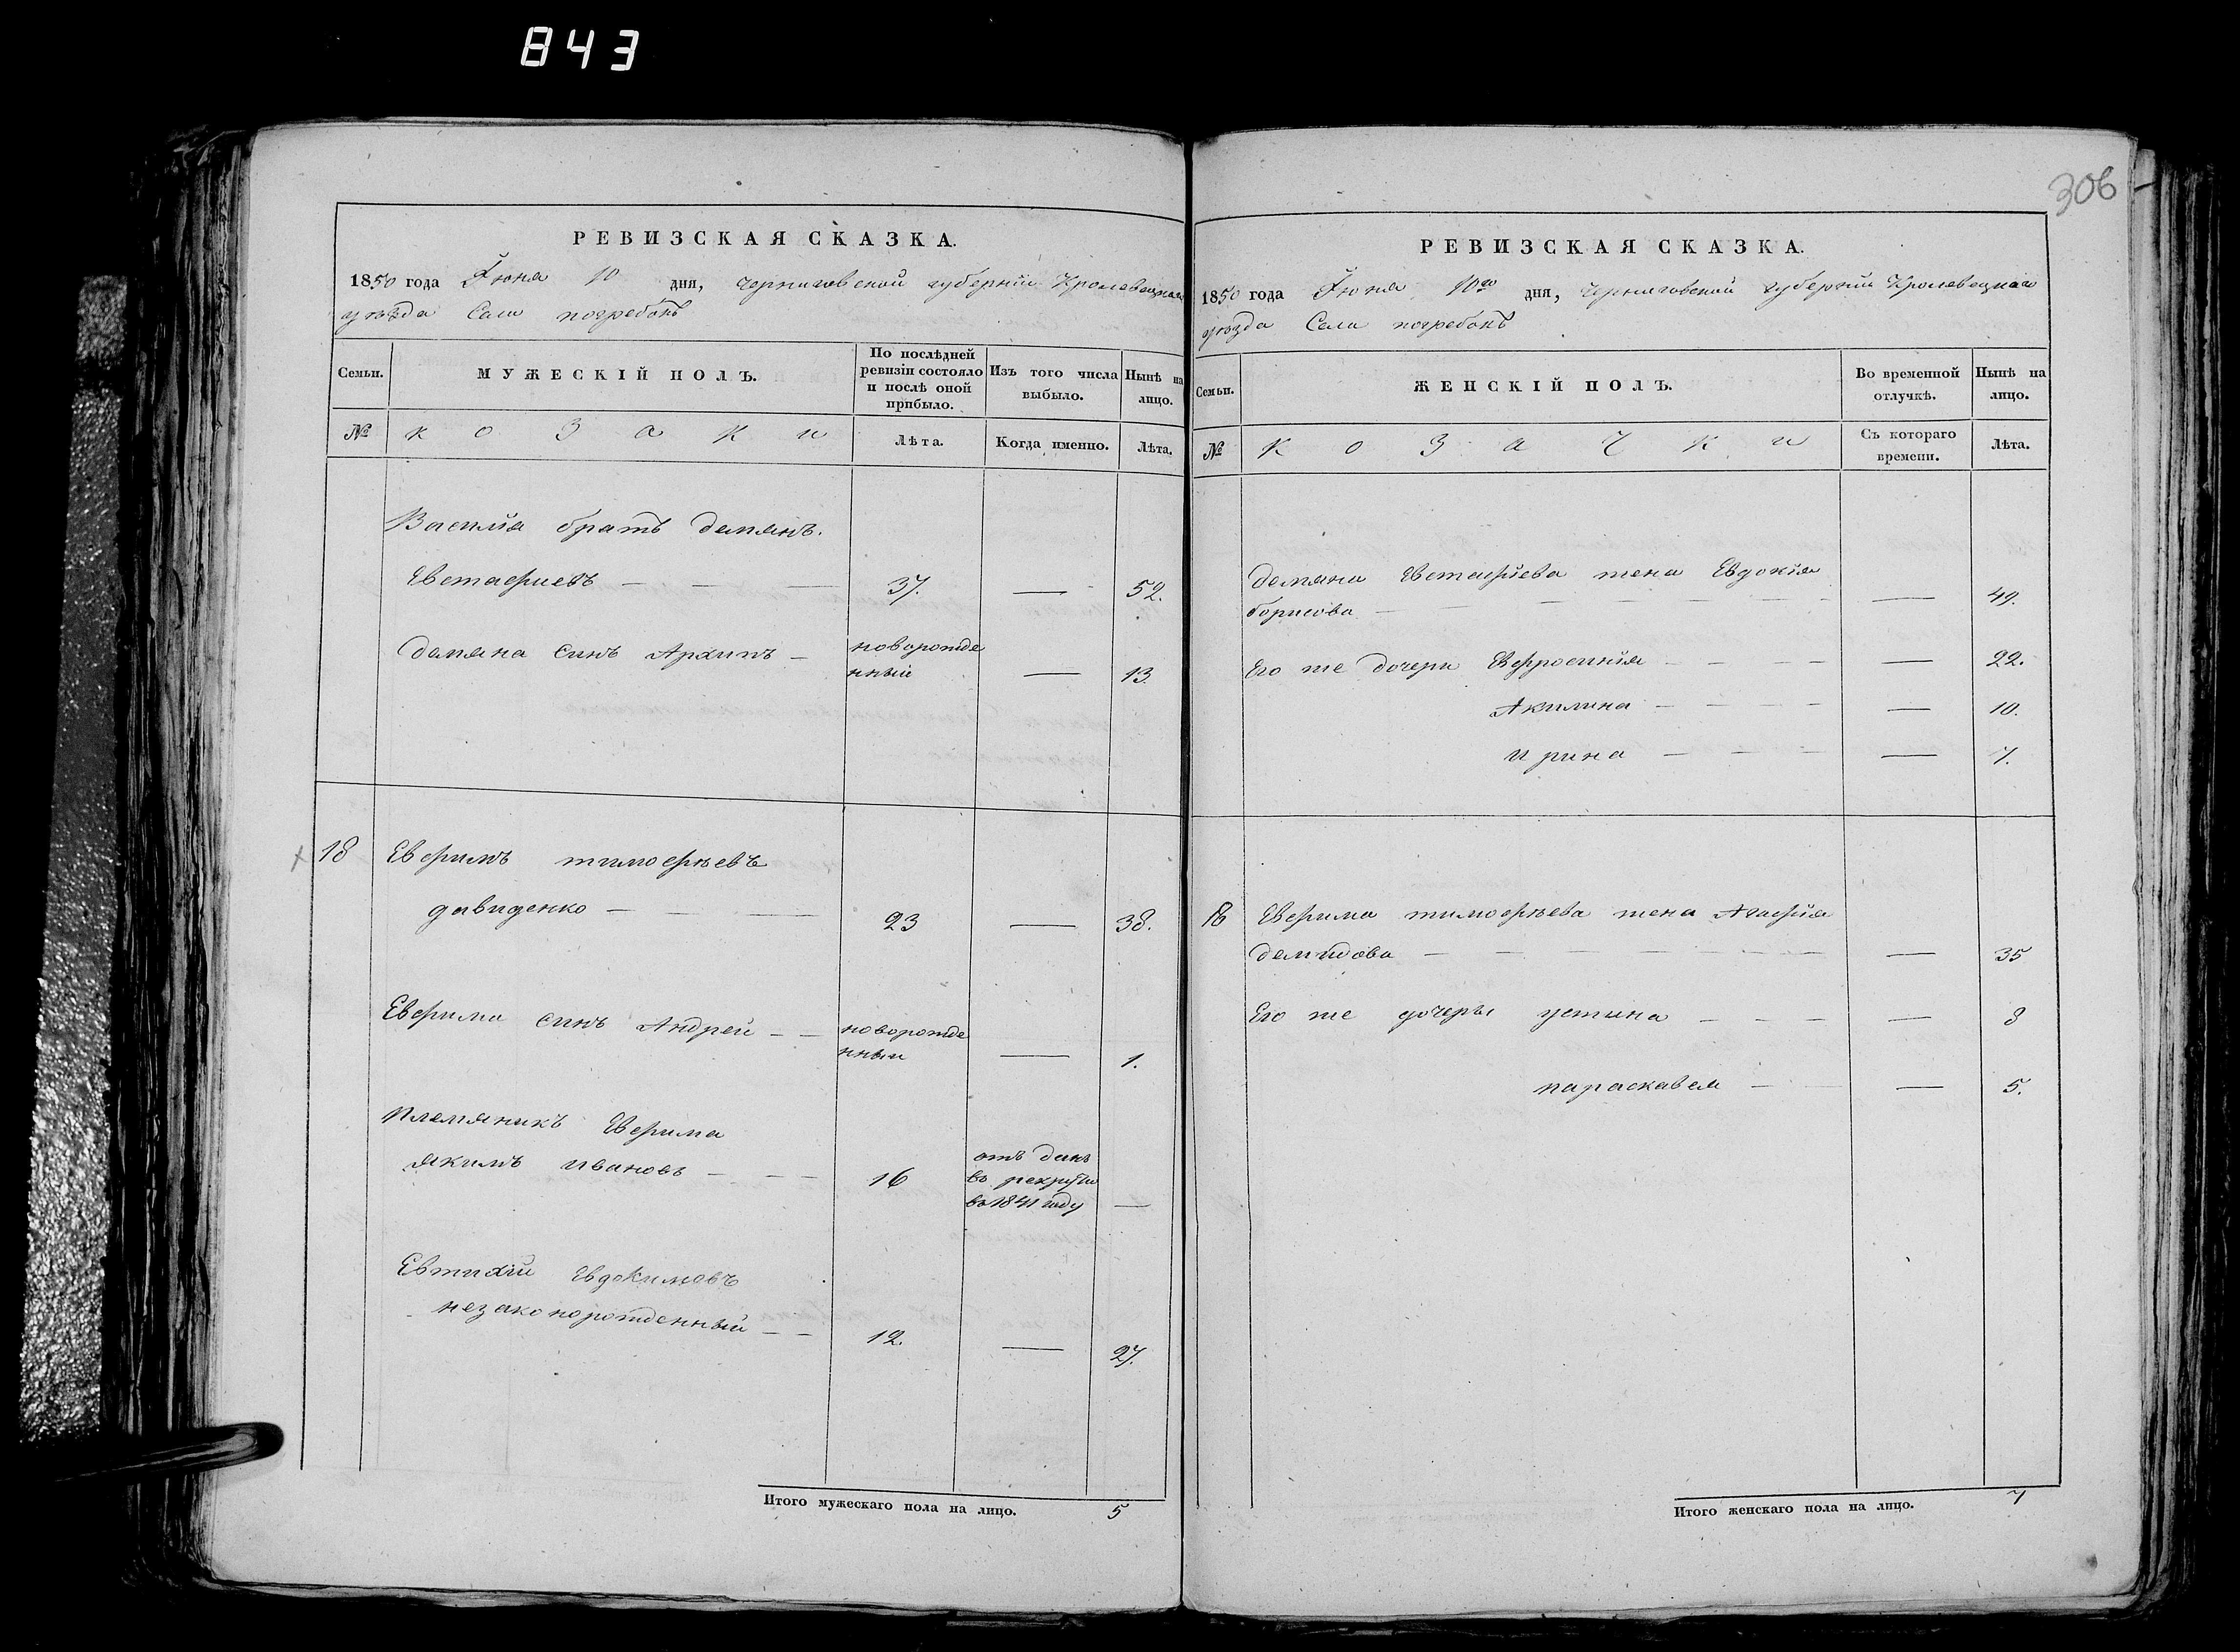 843
306
РЕВИЗСКАЯ СКАЗКА.
1850 года Іюня 10 дня, Черниговской губерніи Кролевецкаго
уѣзда Села погребокъ
Семьи. МУЖЕСКІЙ ПОЛЪ. По послѣдней ревизіи состояло и послѣ оной прибыло. Изъ того числа выбыло. Нынѣ на лицо.
№ козаки Лѣта. Когда именно. Лѣта.
Василія братъ демянъ.
Евстафиевъ — — — 37. — 52.
демяна синъ Архипъ — новорожде
нный — 13
18 Евфимъ тимофѣевъ
давиденко — — — 23 — 38.
Евфима синъ Андрей — — новорожде
нный — 1.
племяникъ Евфима
якимъ ивановъ — — — 16 отъ данъ
въ рекруты
въ 1841 году —
Евтихій Евдокимовъ
незаконорожденный — — 12. — 27.
Итого мужескаго пола на лицо. 5
РЕВИЗСКАЯ СКАЗКА.
1850 года Іюня 10го дня, Черниговской губерніи Кролевецкаго
уѣзда Села погребокъ
Семьи. ЖЕНСКІЙ ПОЛЪ. Во временной отлучкѣ. Нынѣ на лицо.
№ козачки Съ котораго времени. Лѣта.
демяна Евстафіева жена Евдокія
борисова — — — — — — 49.
Его же дочери Евфросинія — — — — — 22.
Акилина — — — — — 10.
ирина — — — — — 7.
18 Евфима тимофѣева жена Агафія
демидова — — — — — — 35
Его же дочеры устина — — — — — 8
параскавея — — — 5.
Итого женскаго пола на лицо. 7